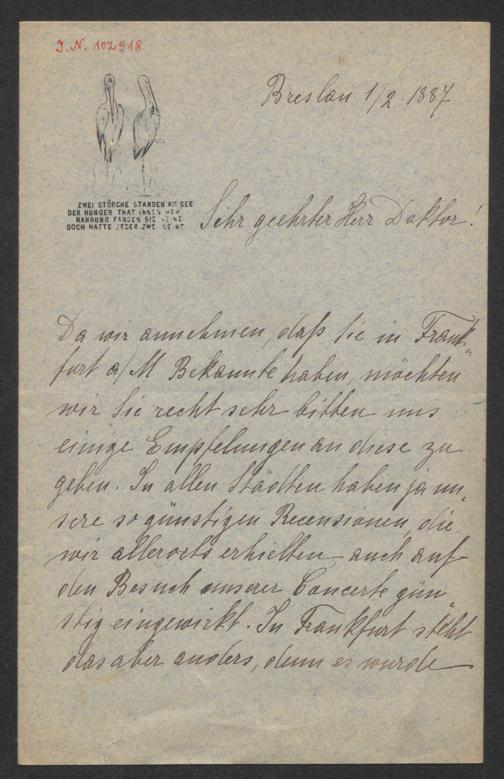 J. N. 102918
Breslau 1/2 1887
ZWEI STÖRCHE STANDEN AM SEE
DER HUNGER THAT IHNEN WEH,
NAHRUNG FANDEN SIE KEINE
DOCH HATTE JEDER ZWEI BEINE
Sehr geehrter Herr Doktor!
Da wir annehmen, daß Sie in Frank-
furt a/M Bekannte haben, möchten
wir Sie recht sehr bitten uns
einige Empfelungen an diese zu
geben. In allen Städten haben ja un-
sere so günstigen Recensionen, die
wir allerorts erhielten auch auf
den Besuch unserer Concerte gün
stig eingewirkt. In Frankfurt steht
das aber anders, denn es wurde